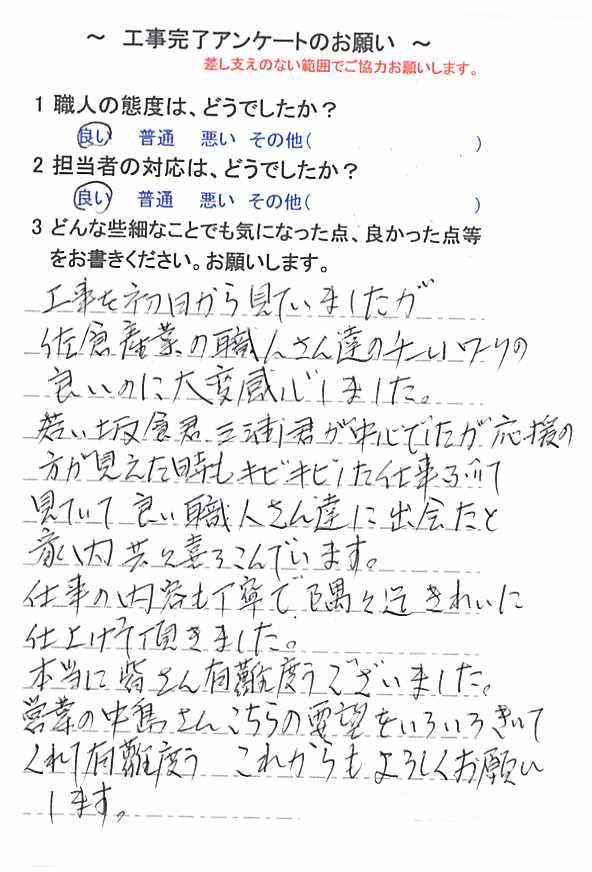 ～ 工事完了アンケートのお願い ～
差し支えのない範囲でご協力お願いします。
1 職人の態度は、どうでしたか？
良い 普通 悪い その他( )
2 担当者の対応は、どうでしたか？
良い 普通 悪い その他( )
3 どんな些細なことでも気になった点、良かった点等
をお書きください。お願いします。
工事を初日から見ていましたが
佐倉産業の職人さん達のチームワークの
良いのに大変感心しました。
若い坂倉君 三浦君が中心でしたが応援の
方が見えた時もキビキビした仕事ぶりで
見ていて良い職人さん達に出会たと
家内共々喜こんでいます。
仕事の内容も丁寧で隅々迄きれいに
仕上げて頂きました。
本当に皆さん有難度うございました。
営業の中島さんこちらの要望をいろいろきいて
くれて有難度う これからもよろしくお願い
します。